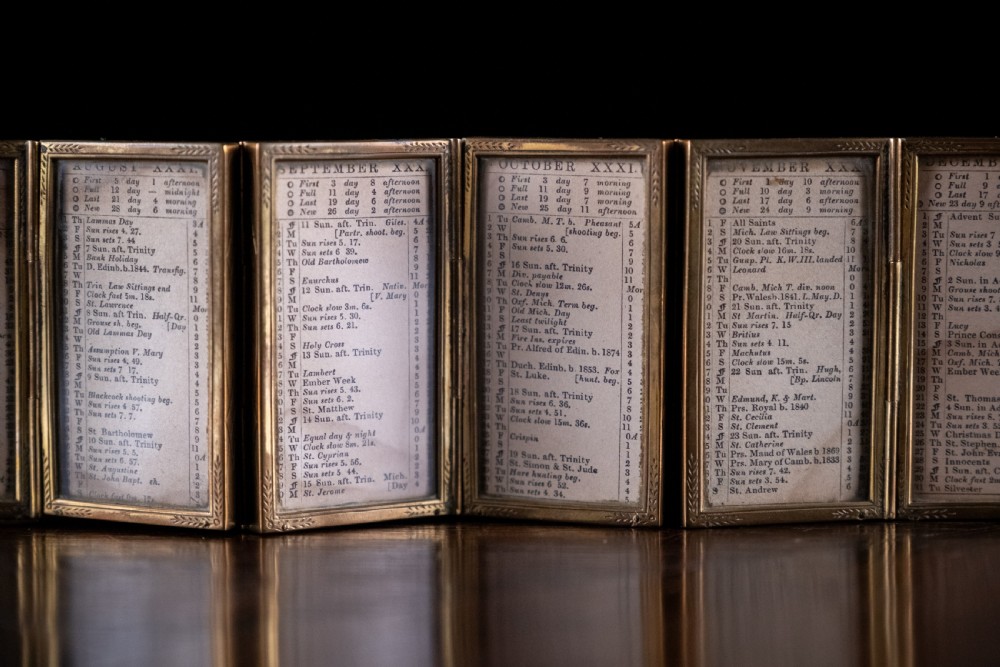 AUGUST XXXI.
First 5 day 1 afternoon
Full 12 day — midnight
Last 21 day 4 morning
New 28 day 6 morning
Th Lammas Day
F Sun rises 4. 27.
S Sun sets 7. 44
7 Sun. aft. Trinity
M Bank Holiday
Tu D. Edinb. b. 1844. Transfig.
W
Th Trin. Law Sittings end
F Clock fast 5m. 18s.
S St. Lawrence
8 Sun aft. Trin. Half-Qr.
M Grouse sh. beg. [Day
Tu Old Lammas Day
W
Th Assumption V. Mary
F Sun rises 4. 49.
S Sun sets 7 17.
9 Sun. aft. Trinity
M
Tu Blackcock shooting beg.
W Sun rises 4 57.
Th Sun sets 7. 7.
F
S St. Bartholomew
10 Sun. aft. Trinity
M Sun rises 5. 5.
Tu Sun sets 6. 57.
W St. Augustine
Th St. John Bapt. sh.
F
SEPTEMBER XXX
First 3 day 8 afternoon
Full 11 day 4 afternoon
Last 19 day 6 afternoon
New 26 day 2 afternoon
11 Sun. aft. Trin. Giles.
M [Partr. shoot. beg.
Tu Sun rises 5. 17.
W Sun sets 6 39.
Th Old Bartholomew
F
S Enurchus
12 Sun. aft. Trin. Nativ.
M [V. Mary
Tu Clock slow 3m. 6s.
W Sun rises 5. 30.
Th Sun sets 6. 21.
F
S Holy Cross
13 Sun. aft. Trinity
M
Tu Lambert
W Ember Week
Th Sun rises 5. 43.
F Sun sets 6. 2.
S St. Matthew
14 Sun. aft. Trinity
M
Tu Equal day & night
W Clock slow 8m. 21s.
Th St. Cyprian
F Sun rises 5. 56.
S Sun sets 5 44.
15 Sun. aft. Trin. Mich.
M St. Jerome [Day
OCTOBER XXXI
First 3 day 7 morning
Full 11 day 9 morning
Last 19 day 7 morning
New 25 day 11 afternoon
Tu Camb. M. T. b. Pheasant
W [shooting beg.
Th Sun rises 6. 6.
F Sun sets 5. 30.
S
16 Sun. aft. Trinity
M Div. payable
Tu Clock slow 12m. 26s.
W St. Denys
Th Oxf. Mich. Term beg.
F Old Mich. Day
S Least twilight
17 Sun aft. Trinity
M Fire Ins. expires
Tu Pr. Alfred of Edin. b. 1874
W
Th Duch. Edinb. b. 1853. Fox
F St. Luke. [hunt. beg.
S
18 Sun. aft. Trinity
M Sun rises 6. 36.
Tu Sun sets 4. 51.
W Clock slow 15m. 36s.
Th
F Crispin
S
19 Sun. aft. Trinity
M St. Simon & St. Jude
Tu Hare hunting beg.
W Sun rises 6 52.
Th Sun sets 4. 34.
NOVEMBER XXX
First 1 day 10 afternoon
Full 10 day 3 morning
Last 17 day 6 afternoon
New 24 day 9 morning
F All Saints
S Mich. Law Sittings beg.
20 Sun. aft. Trinity
M Clock slow 16m. 18s.
Tu Gunp. Pl. K. W. III. landed
W Leonard
Th
F Camb. Mich T. div. noon
S Pr. Wales b. 1841. L. May. D.
21 Sun. aft. Trinity
M St Martin. Half-Qr. Day
Tu Sun rises 7. 15
W Britius
Th Sun sets 4. 11.
F Machutus
S Clock slow 15m. 5s.
22 Sun aft. Trinity Hugh,
M [Bp. Lincoln
Tu
W Edmund, K. & Mart.
Th Prs. Royal b. 1840
F St. Cecilia
S St. Clement
23 Sun. aft. Trinity
M St. Catherine
Tu Prs. Maud of Wales b 1869
W Prs. Mary of Camb. b. 1833
Th Sun rises 7. 42.
F Sun sets 3. 54.
S St. Andrew
DECEMB
First 1
Full 9
Last 17
New 23 day 9 af
Advent Su
M
Tu Sun rises 7
W Sun sets 3
Th Clock slow 9
F Nicholas
S
2 Sun. in A
M Grouse shoot
Tu Sun rises 7.
W Sun sets 3.
Th
F Lucy
S Prince Cons
3 Sun. in A
M Camb. Mich
Tu Oxf. Mich.
W Ember Week
Th
F
S St. Thomas
4 Sun. in A
M Sun rises 8.
Tu Sun sets 3.
W Christmas
Th St. Stephen
F St. John Ev
S Innocents
1 Sun. af
M Clock fast 2m
Tu Silvester